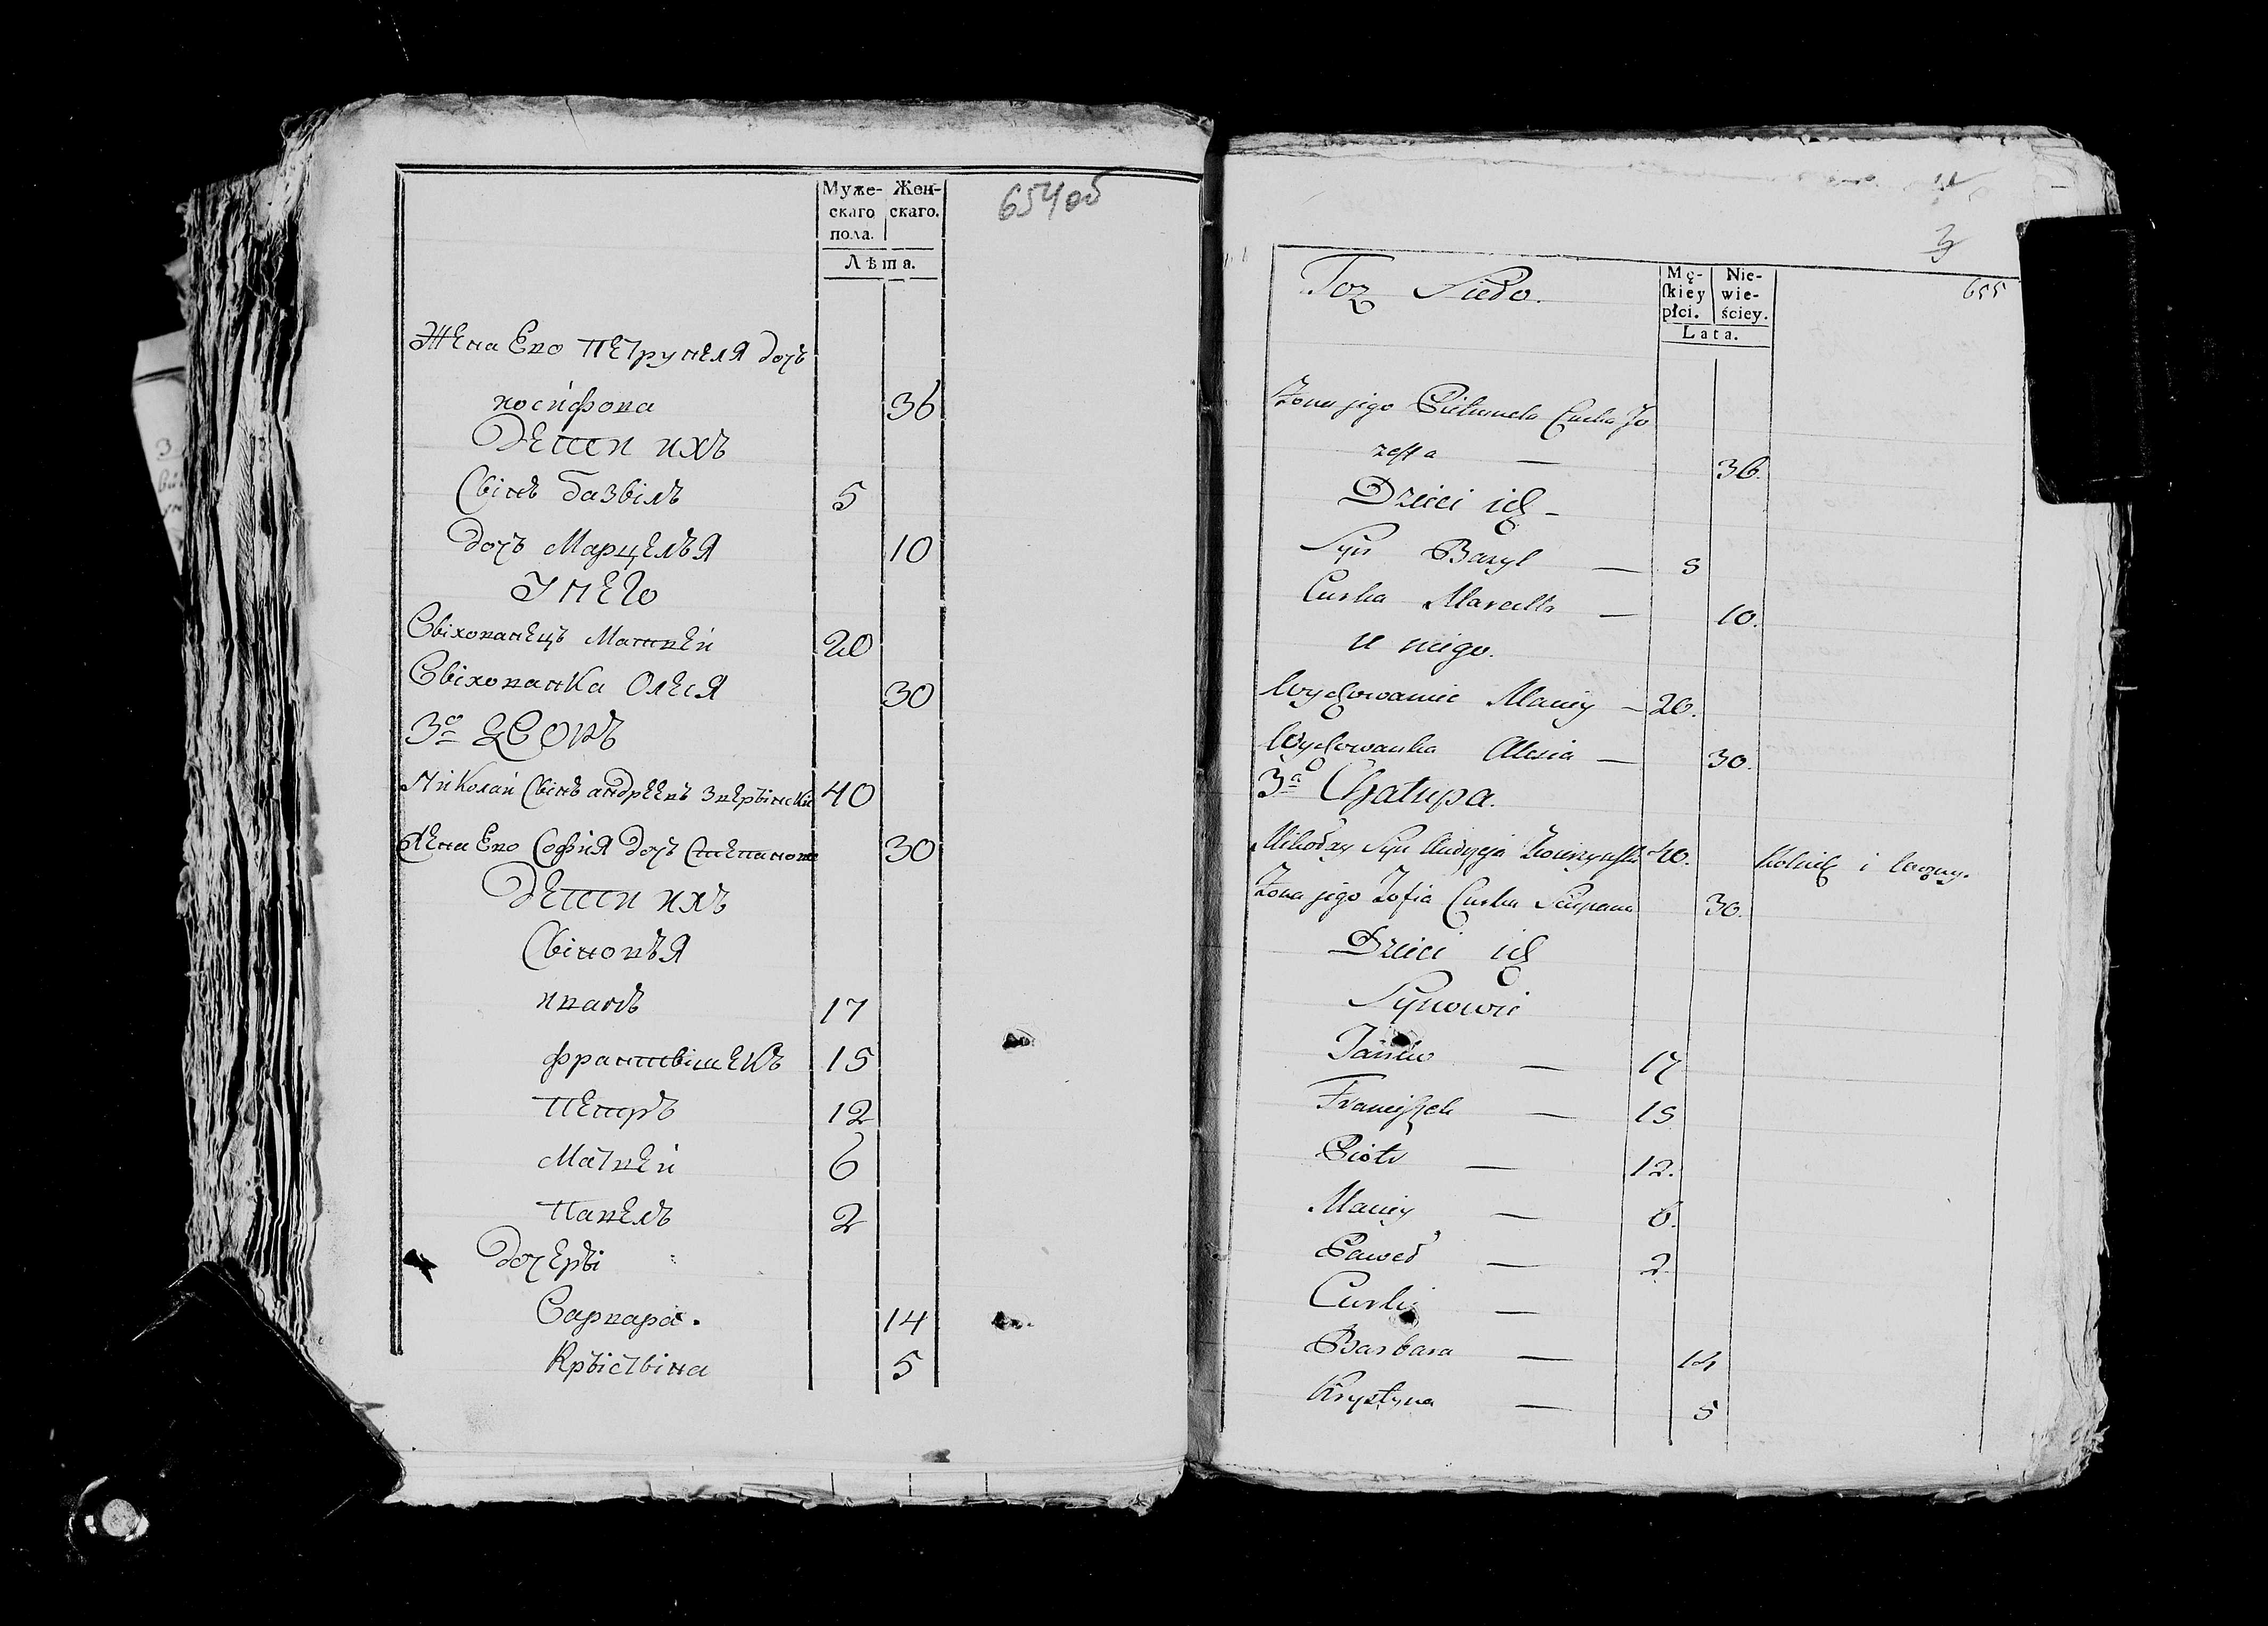 Муже- Жен-
скаго скаго.
пола.
Лѣта.
654об
Жена Ево Петрунеля дочъ
иосифова 36
Дети ихъ
Свінъ базвілъ 5
дочъ Марцелъя 10
У него
Свіхованецъ Матвей 20
Свіхованка Олеся 30
3я
Николай Свінъ андреевъ Зверъінски 40
Жена Ево София дочъ Степанова 30
Дети ихъ
Свіновъя
иванъ 17
франтвішекъ 15
Петръ 12
Матвей 6
Павелъ 2
дочеръі
Варвара. 14
Кръіствіна 5
3
655
Toż Sioło.
Mę- Nie-
skiey wie-
płci. ściey.
Lata.
Żona jego Pietrunela Curka Jo
zefa — 36.
Dzieci ich —
Syn Bazyl — 5
Curka Marcella — 10.
u niego.
Wychowaniec Maciey — 20.
Wychowanka Alesia — 30.
3a Chałupa.
Mikołay Syn Andrzeja Zwierzynski 40.
Żona jego Zofia Curka Sciepana 30.
Dzieci ich
Synowie
Janku — 17
Franciszek — 15
Piotr — 12.
Maciey — 6.
Paweł — 2
Curki —
Barbara — 14
Krystyna — 5